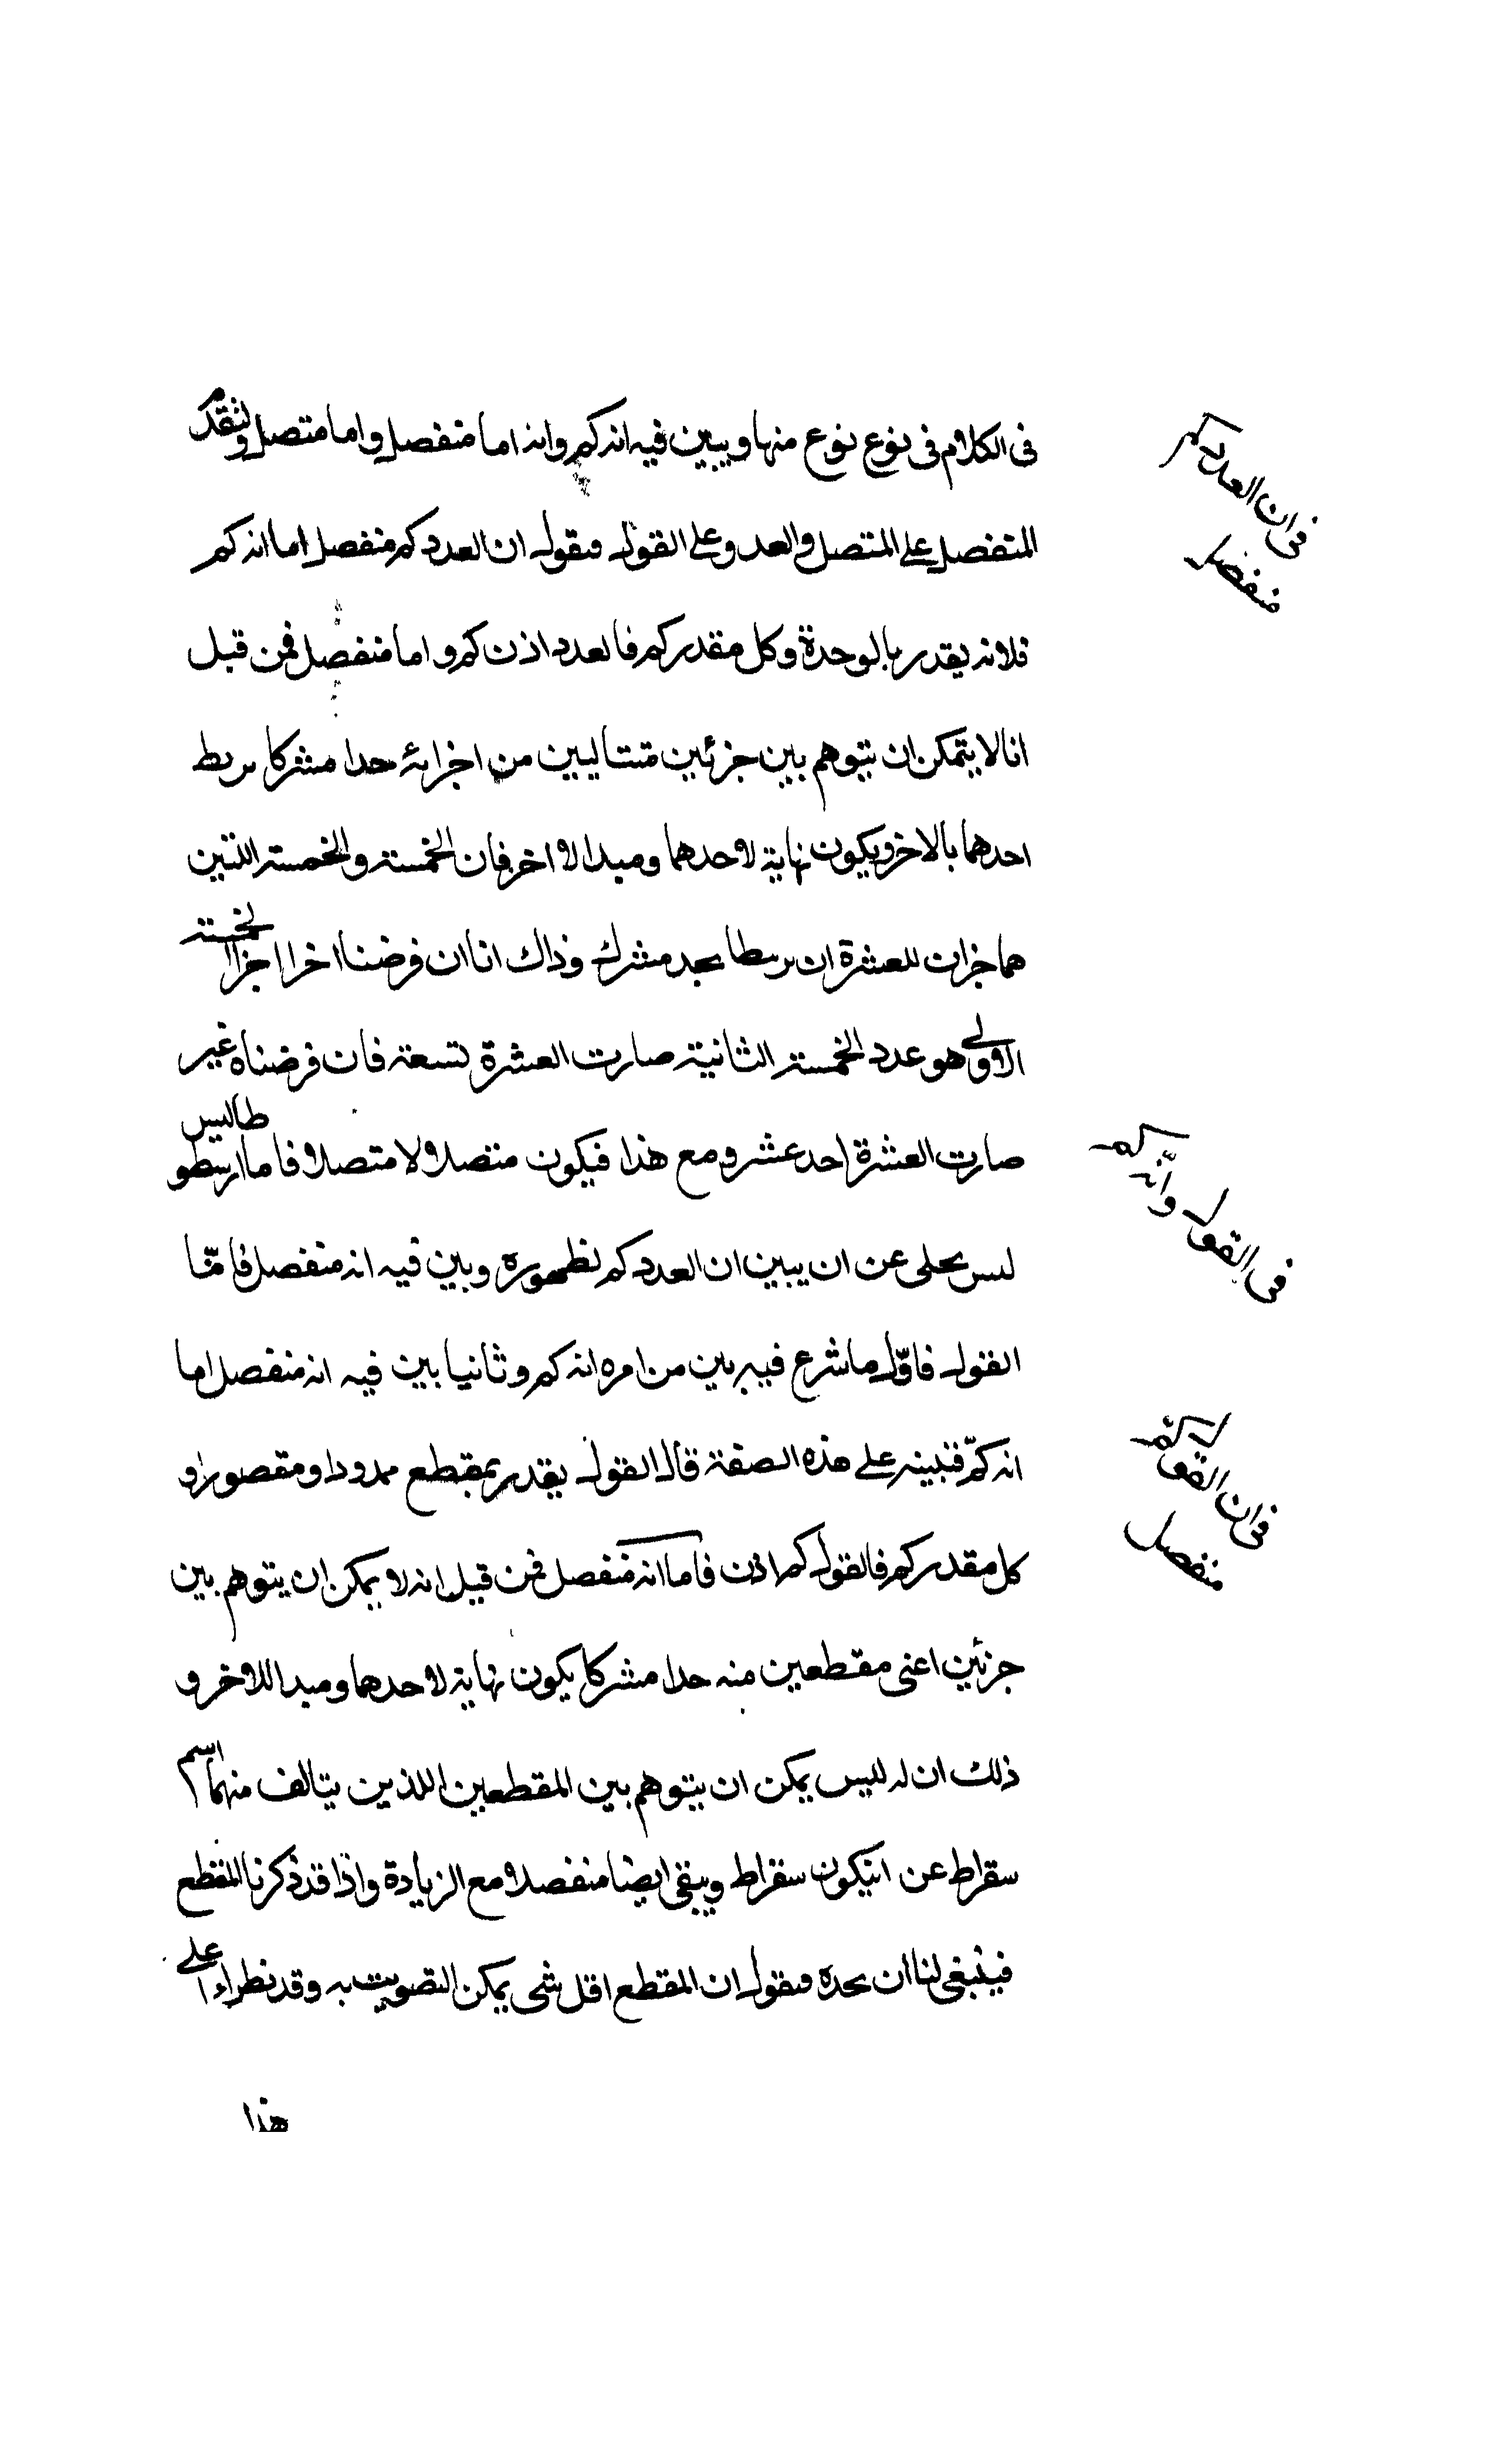 فى الكلام فى نوع نوع منها ويبين فيه انه كم وانه اما منفصل واما متصل ولنقدم
المنفصل على المتصل والعدد وعلى القول فنقول ان العدد كم منفصل اما انه كم
فلانه يقدر بالوحدة وكل مقدر كم فالعدد اذن كم واما منفصل فمن قبل
انا لا يتمكن ان نتوهم بين جزئين متتاليين من اجزائه حدا مشتركا يربط
احدهما بالاخر ويكون نهاية لاحدهما ومبدا لاخر فان الخمسة والخمسة اللتين
هما جزان للعشرة ان يربطا بحد مشترك وذاك انا ان فرضنا اخر اجزاا لخمسة
الاولى هو عدد الخمسة الثانية صارت العشرة تسعة فان فرضناه غير
صارت العشرة احد عشر ومع هذا فيكون منفصلا ولا متصلا فاما ارسطوطاليس
ليس يخلى عن ان يبين ان العدد كم لظهوره وبين فيه انه منفصل فامّا
القول فاوّل ما شرع فيه بين من امره انه كم وثانيا بين فيه انه منفصل اما
انه كمّ فتبينه على هذه الصفة قال القول يقدر بمقطع ممدود او مقصور او
كل مقدر كم فالقول كم اذن فاما انه منفصل فمن قبل انه لا يمكن ان يتوهم بين
جزئين اعنى مقطعين منه حدا مشتركا يكون نهاية لاحدهما ومبدا للاخر و
ذلك ان له ليس يمكن ان يتوهم بين المقطعين اللذين يتالف منهما اسم
سقراط عن انيكون سقراط ويبقى ايضا منفصلا مع الزيادة واذا قد ذكرنا المقطع
فينبغى لنا ان نحده فنقول ان المقطع اقل شى يمكن التصويت به وقد نطراء على
هذا
فى ان العدد كم
منفصل
فى القول وانّه كم
فى ان القول كم
منفصل